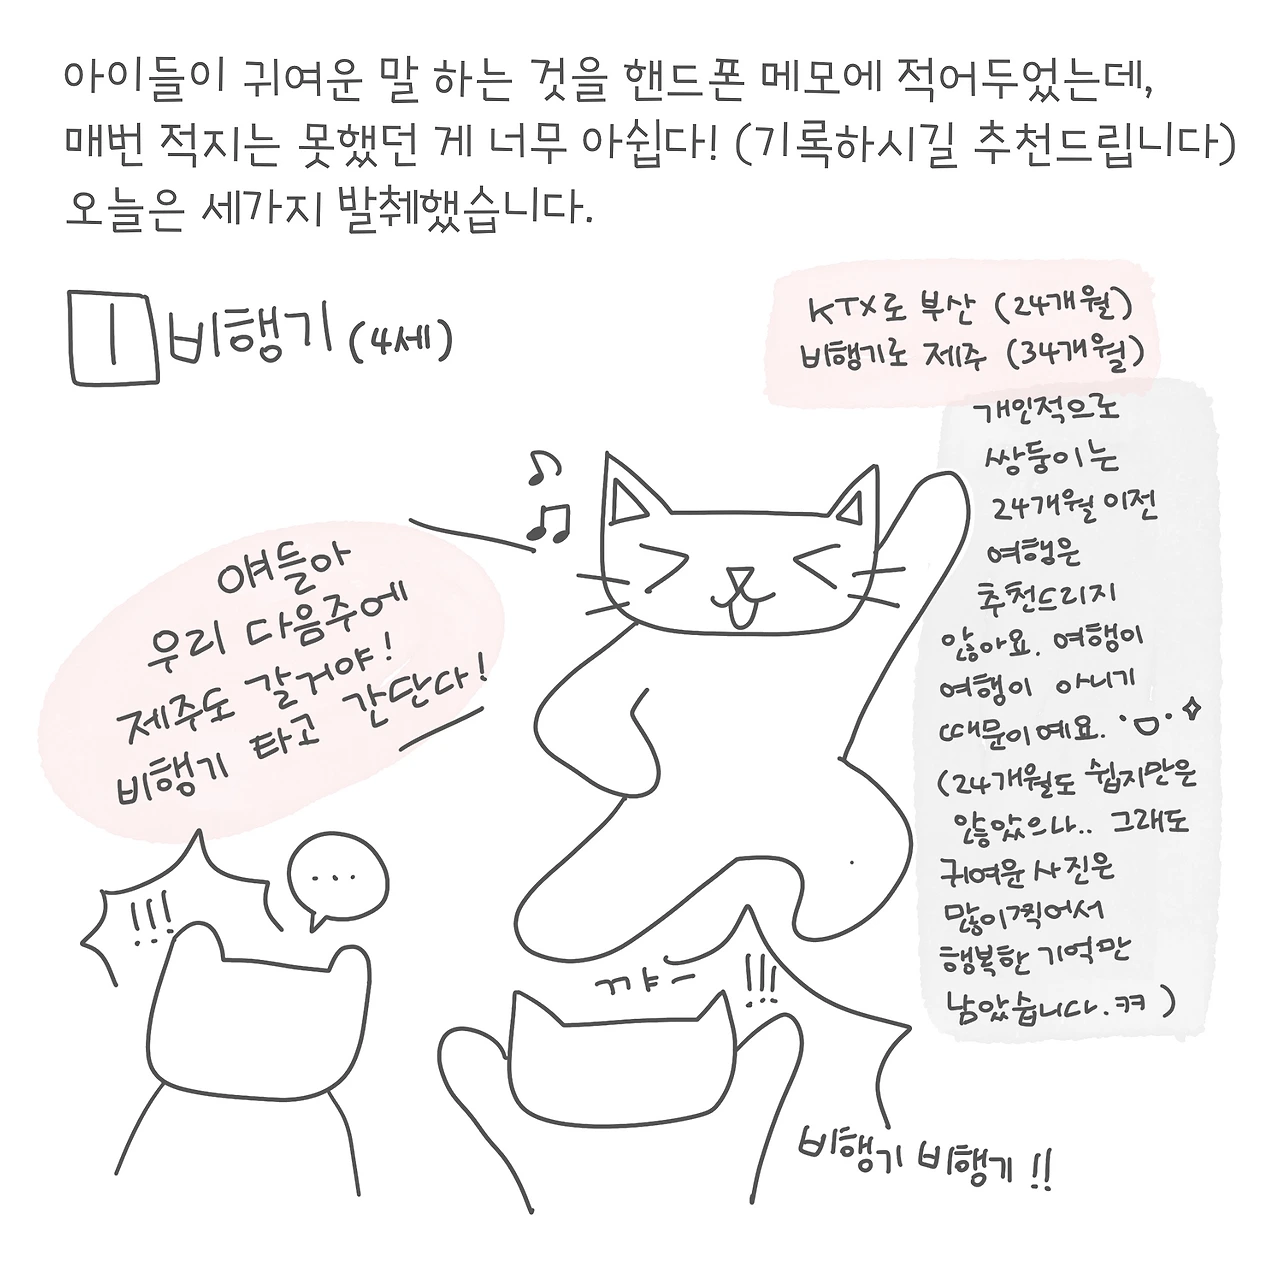 아이들이 귀여운 말 하는 것을 핸드폰 메모에 적어두었는데,
매번 적지는 못했던 게 너무 아쉽다! (기록하시길 추천드립니다)
오늘은 세가지 발췌했습니다.
1 비행기 (4세)
KTX로 부산 (24개월)
비행기로 제주 (34개월)
개인적으로
쌍둥이는
24개월 이전
여행은
추천드리지
않아요. 여행이
여행이 아니기
때문이예요.
(24개월도 쉽지만은
않았으나.. 그래도
귀여운 사진은
많이 찍어서
행복한 기억만
남았습니다. ㅋㅋ)
얘들아
우리 다음주에
제주도 갈거야!
비행기 타고 간단다!
!!!
...
꺄-
!!!
비행기 비행기 !!